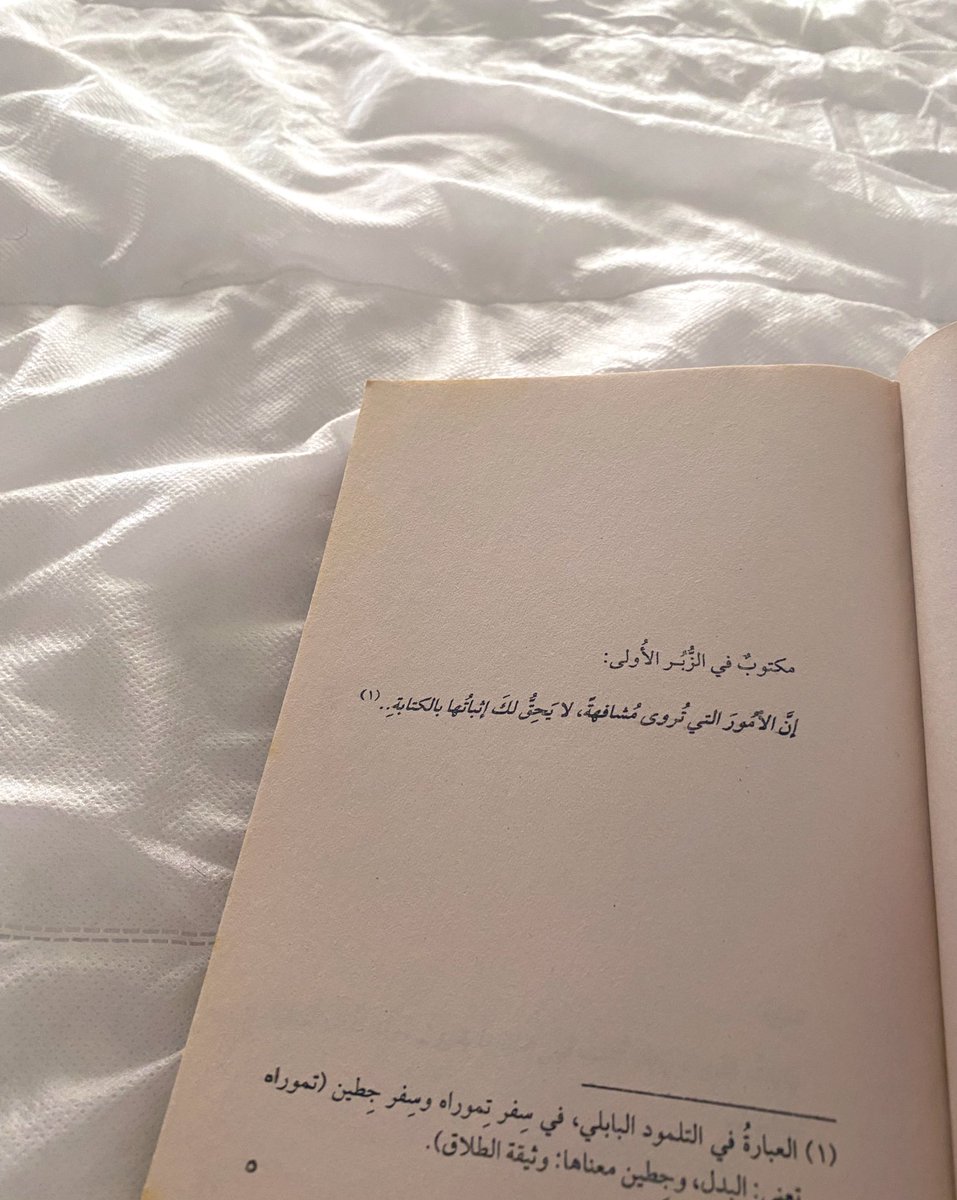 مكتوبٌ في الزُّبُر الأُولى:
إنَّ الأمُورَ التي تُروى مُشافهةً، لا يَحِقُّ لكَ إثباتُها بالكتابةِ..(١)
(١) العبارةُ في التلمود البابلي، في سِفر تِموراه وسِفر جِطين (تموراه
تعني: البدل، وجِطين معناها: وثيقة الطلاق).
٥